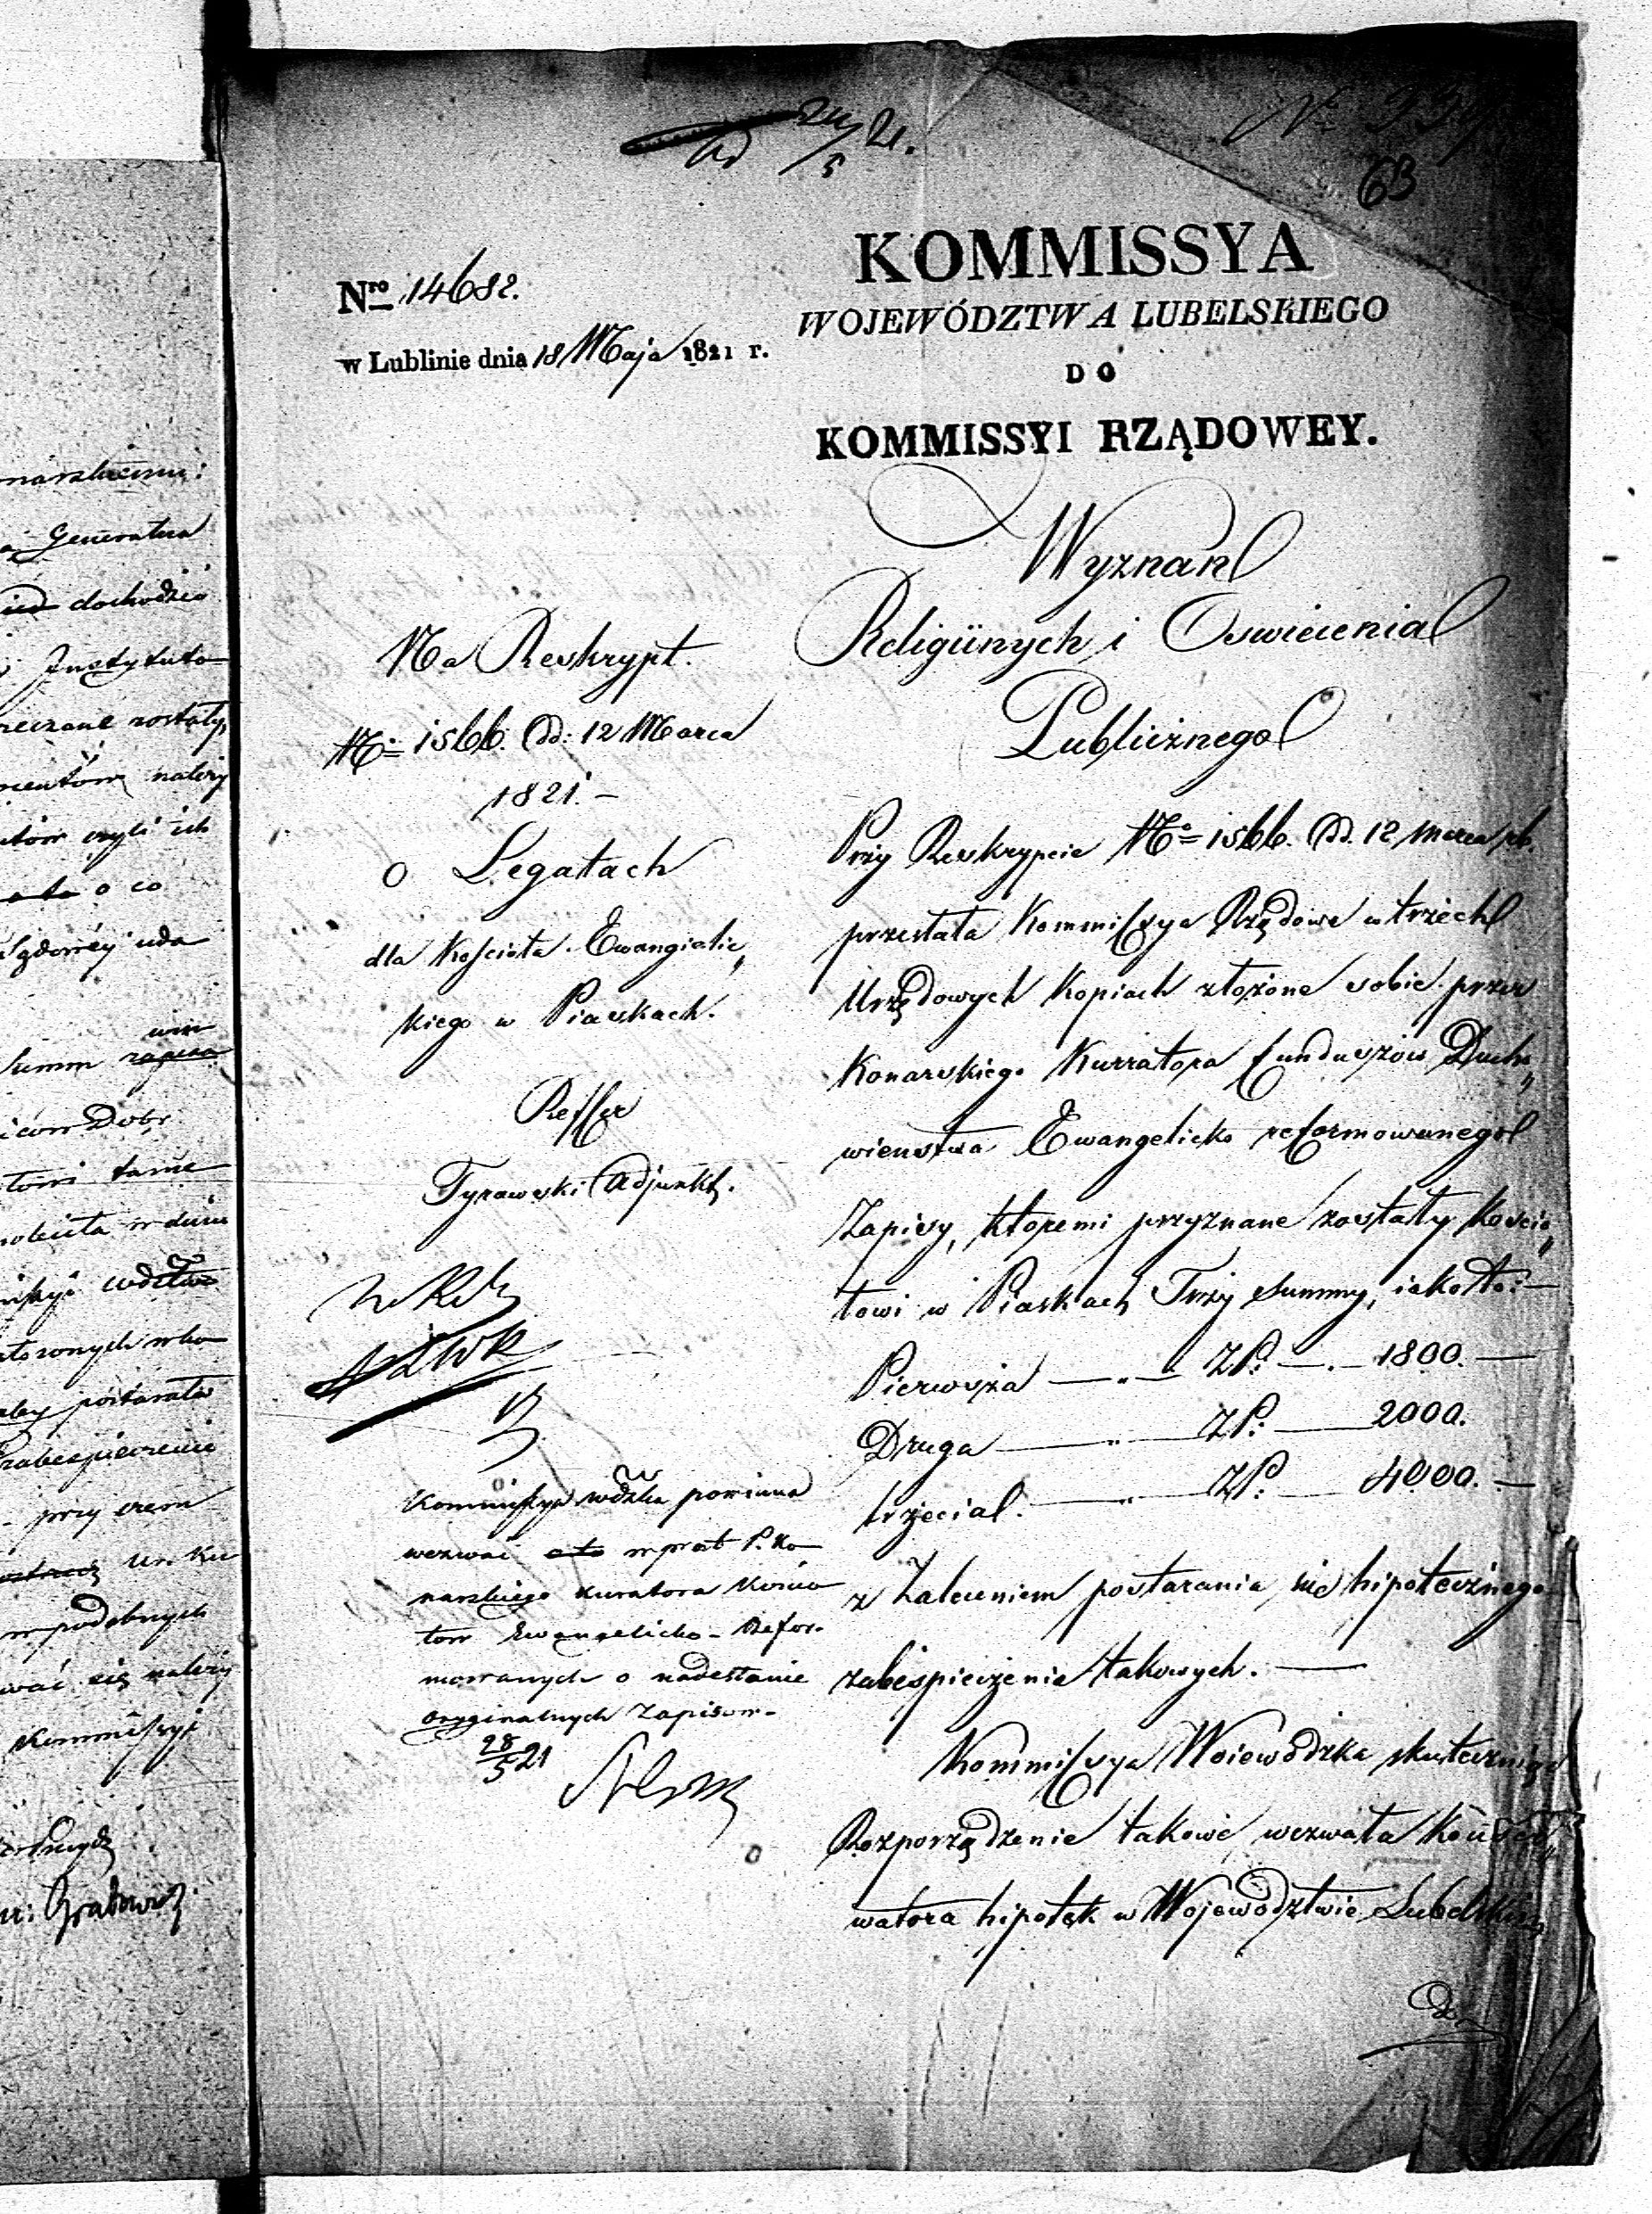 24/5 21.
63
Nro 14682.
w Lublinie dnia 18 Maja 1821 r.
KOMMISSYA
WOJEWÓDZTWA LUBELSKIEGO
DO
KOMMISSYI RZĄDOWEY.
Wyznań
Religiinych i Oswiecenia
Publicznego
Na Reskrypt.
No 1566. dd: 12 Marca
1821. –
o Legatach
dla Kościoła Ewangielic„
kiego w Piaskach.
Reffer
Tyrawski Adjunkt.
Przy Reskrypcie No 1566. dd. 12 Marca rb.
przesłała Kommissya Rządowa w trzech
Urzędowych Kopiach złożone sobie przez
Konarskiego Kurratora funduszów Ducho„
wieństwa Ewangelicko reformowanego
Zapisy, któremi przyznane zostały Kościo„
łowi w Piaskach Trzy Summy, iako to: —
Pierwsza — „ — ZP: — . — 1800. —
Druga — „ — ZP: — 2000.
trzecia — „ — ZP. — 4000. —
z Zaleceniem postarania się hipotecznego
zabespieczenia takowych. —
Kommissya Woiewódzka skuteczniąc
Rozporządzenie takowe wezwała Konser„
watora hipotek w Województwie Lubelskim
Kommissya wdzka powinna
wezwać wprost P. Ko
narskiego kuratora Kościo
łow Ewangelicko – Refor-
mowanych o nadesłanie
oryginalnych Zapisow –
28/5 21
narskiemu:
Generalna
dochodzić
Instytuto
rzeczane zostały,
mentów należy
czyli ich
o co
Sądowéy uda
win
Summ
Dobr
tamże
w dniu
wdztwa
postarała
zabespieczenie
przy czem
w podobnych
wać się należy
Kommissyi
Grabowski